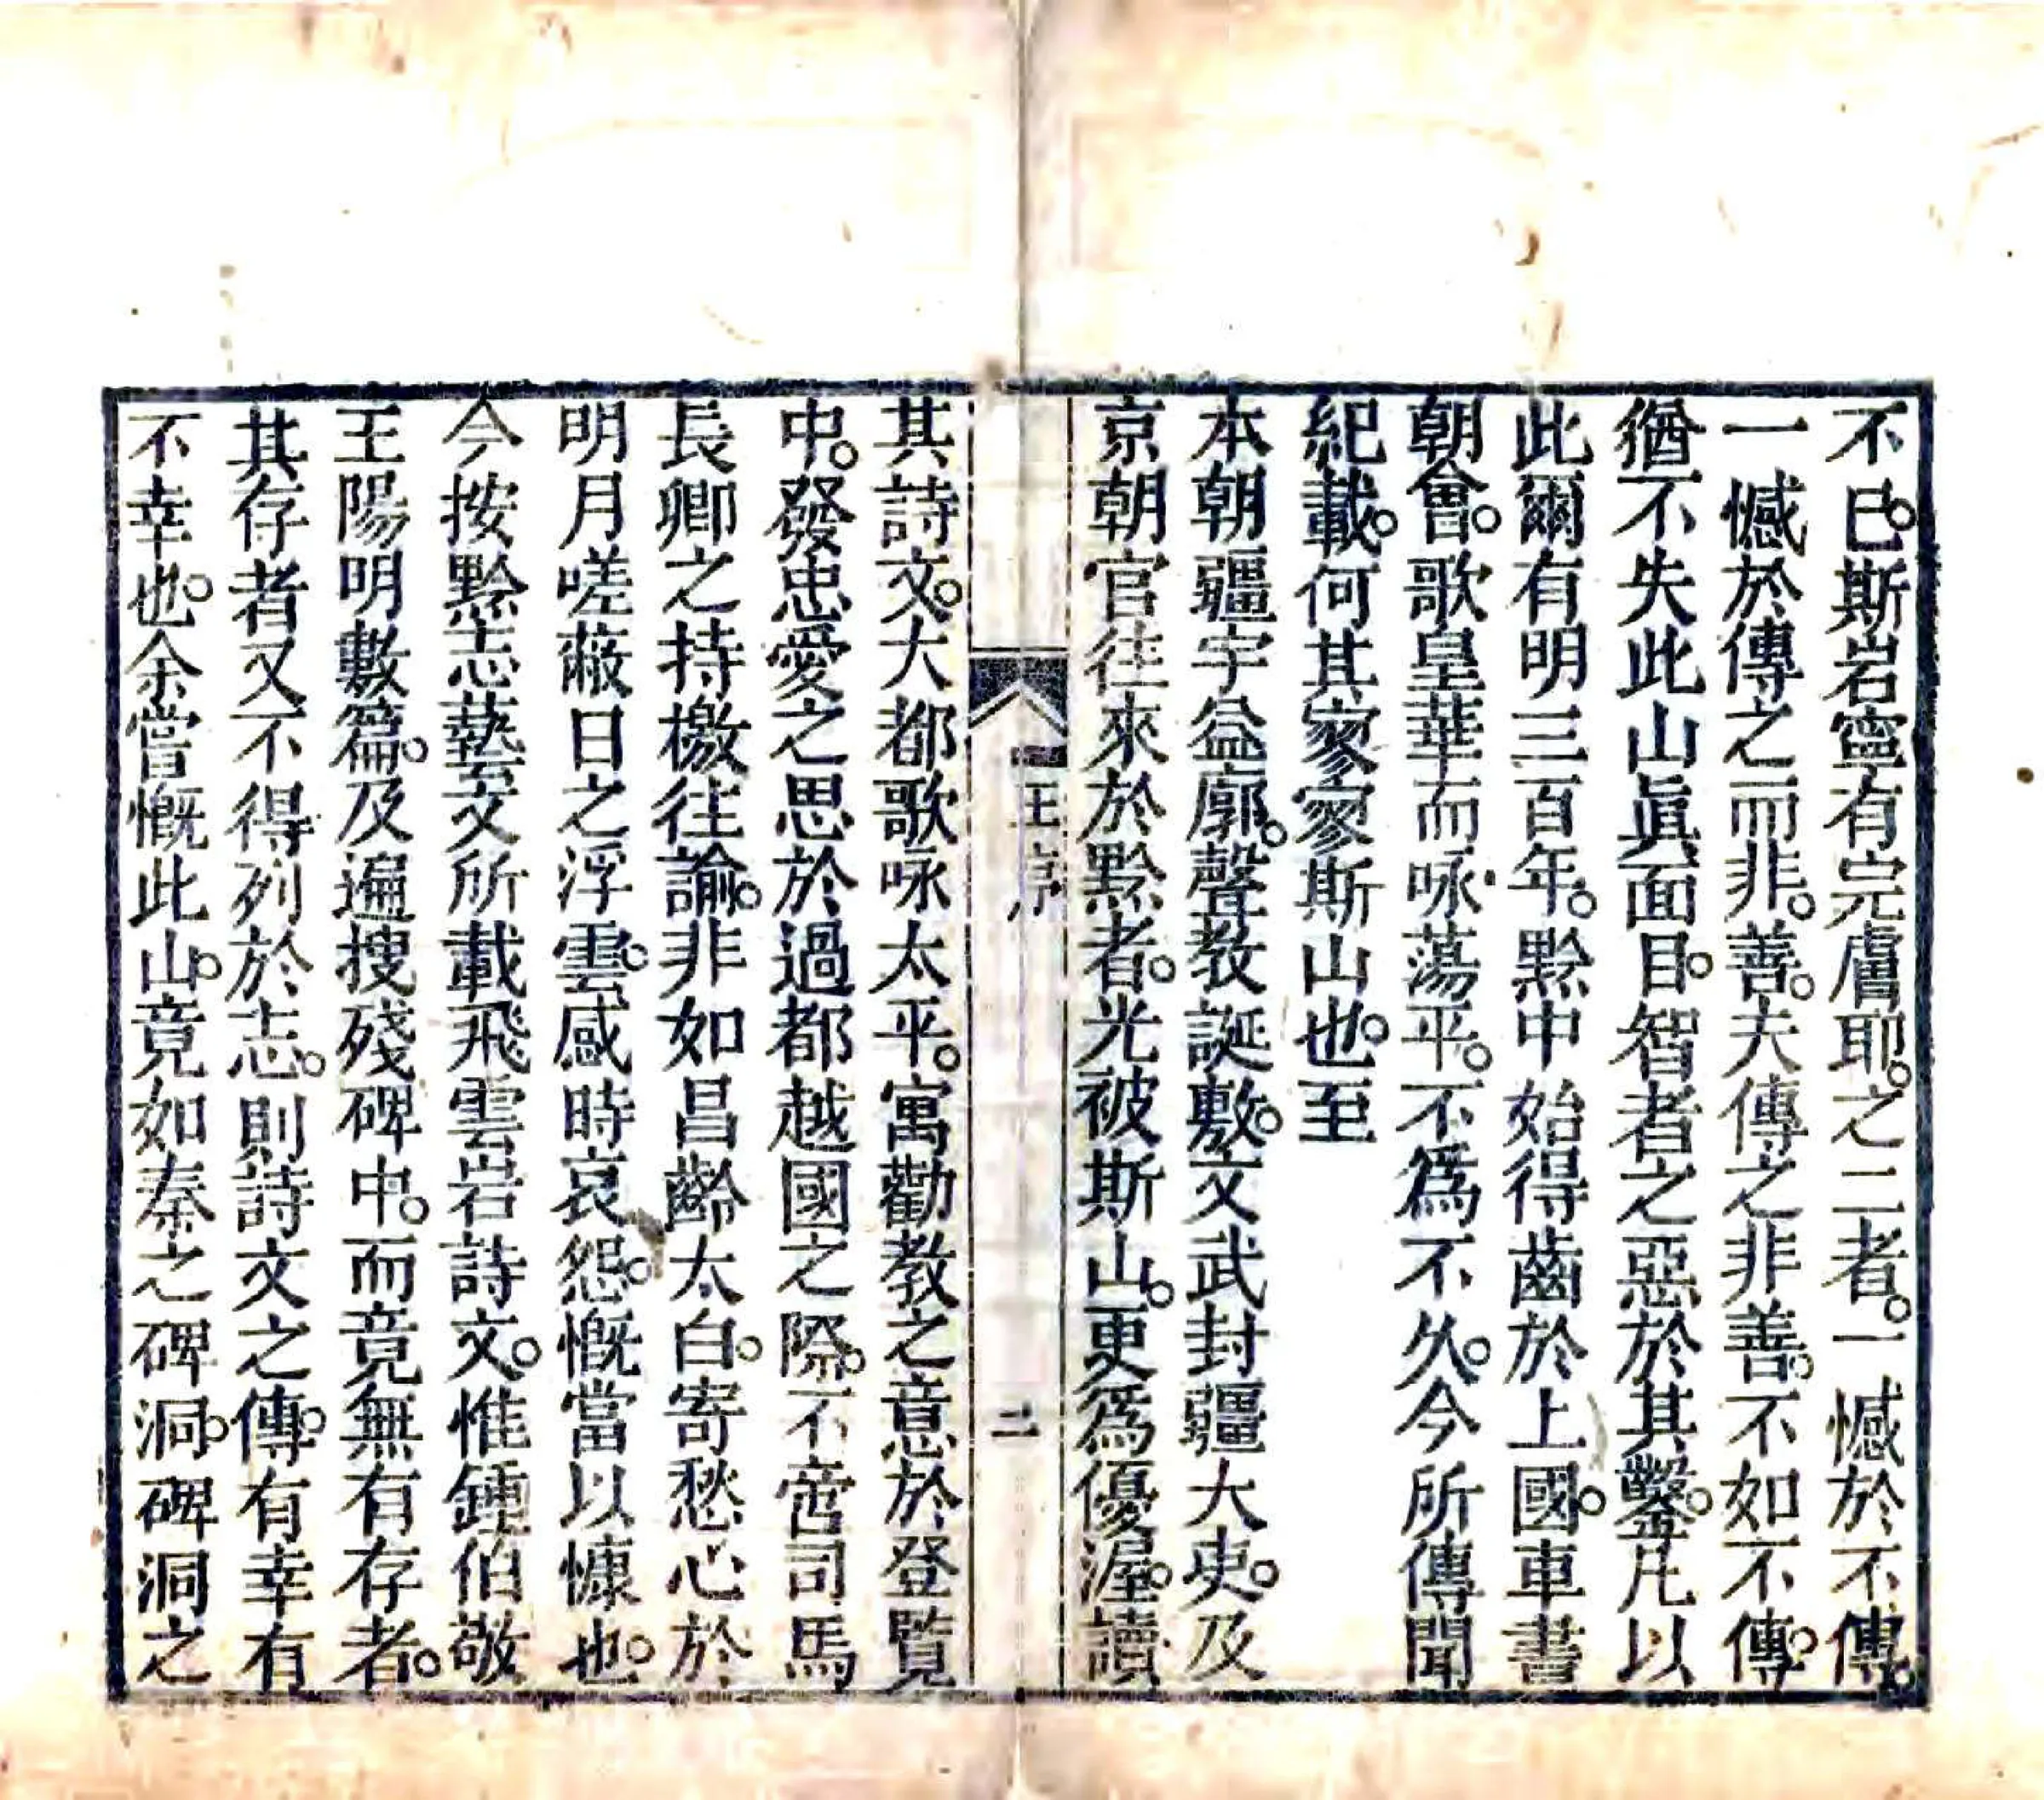 不已。斯岩寧有完膚耶。之二者。一憾於不傳。
一憾於傳之而非。善。夫傳之非善。不如不傳。
猶不失此山眞面目。智者之惡於其鑿。凡以
此爾有明三百年。黔中始得齒於上國。車書
朝會。歌皇華而咏蕩平。不爲不久。今所傳聞
紀載。何其寥寥斯山也。至
本朝疆宇益廓。聲敎誕敷。文武封疆大吏。及
京朝官徃來於黔者。光被斯山。更爲優渥。讀
王序
二
其詩文。大都歌咏太平。寓勸教之意於登覽
中。發忠愛之思於過都越國之際。不啻司馬
長卿之持檄徃諭。非如昌齡太白。寄愁心於
明月嗟蔽日之浮雲。感時哀怨。慨當以慷也。
今按黔志藝文所載飛雲岩詩文。惟鍾伯敬
王陽明數篇。及遍搜殘碑中。而竟無有存者。
其存者又不得列於志。則詩文之傳。有幸有
不幸也。余嘗慨此山。竟如秦之碑洞。碑洞之